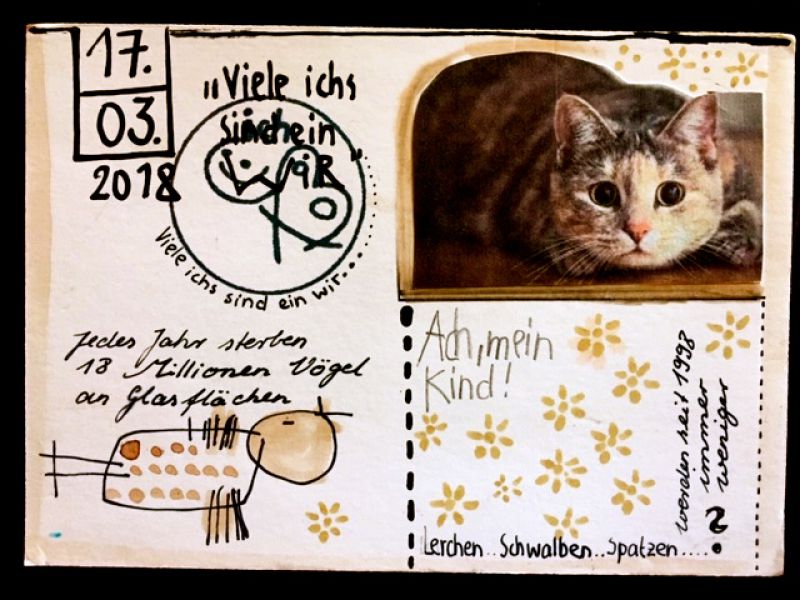 17.
03.
2018
"Viele ichs
sind ein
WIR"
Viele ichs sind ein wir....
Jedes Jahr sterben
18 Millionen Vögel
an Glasflächen
Ach, mein
Kind!
werden seit 1998
immer
weniger
?
Lerchen..Schwalben..Spatzen.....